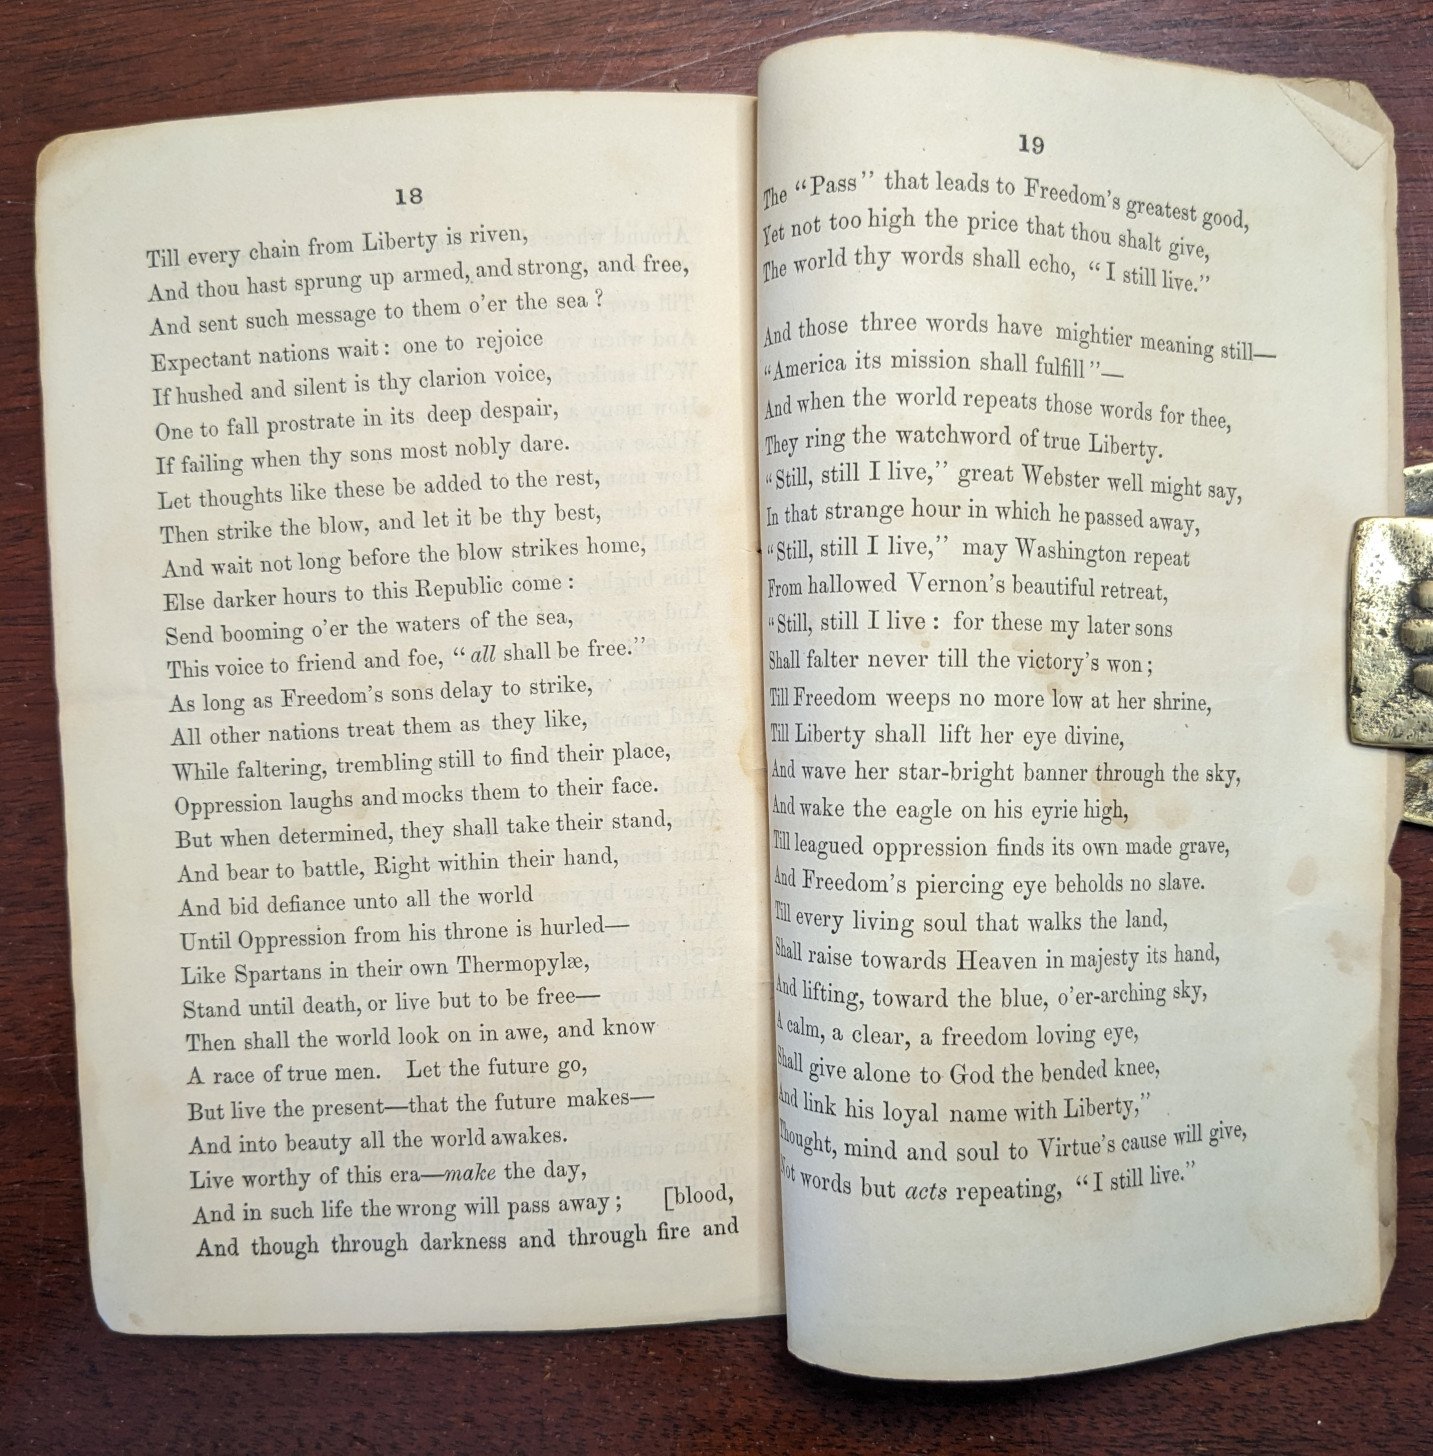 18
Till every chain from Liberty is riven,
And thou hast sprung up armed, and strong, and free,
And sent such message to them o'er the sea?
Expectant nations wait: one to rejoice
If hushed and silent is thy clarion voice,
One to fall prostrate in its deep despair,
If failing when thy sons most nobly dare.
Let thoughts like these be added to the rest,
Then strike the blow, and let it be thy best,
And wait not long before the blow strikes home,
Else darker hours to this Republic come:
Send booming o'er the waters of the sea,
This voice to friend and foe, "all shall be free."
As long as Freedom's sons delay to strike,
All other nations treat them as they like,
While faltering, trembling still to find their place,
Oppression laughs and mocks them to their face.
But when determined, they shall take their stand,
And bear to battle, Right within their hand,
And bid defiance unto all the world
Until Oppression from his throne is hurled—
Like Spartans in their own Thermopylæ,
Stand until death, or live but to be free—
Then shall the world look on in awe, and know
A race of true men. Let the future go,
But live the present—that the future makes—
And into beauty all the world awakes.
Live worthy of this era—make the day,
And in such life the wrong will pass away; [blood,
And though through darkness and through fire and
19
The "Pass" that leads to Freedom's greatest good,
Yet not too high the price that thou shalt give,
The world thy words shall echo, "I still live."
And those three words have mightier meaning still—
"America its mission shall fulfill"—
And when the world repeats those words for thee,
They ring the watchword of true Liberty.
"Still, still I live," great Webster well might say,
In that strange hour in which he passed away,
"Still, still I live," may Washington repeat
From hallowed Vernon's beautiful retreat,
"Still, still I live: for these my later sons
Shall falter never till the victory's won;
Till Freedom weeps no more low at her shrine,
Till Liberty shall lift her eye divine,
And wave her star-bright banner through the sky,
And wake the eagle on his eyrie high,
Till leagued oppression finds its own made grave,
And Freedom's piercing eye beholds no slave.
Till every living soul that walks the land,
Shall raise towards Heaven in majesty its hand,
And lifting, toward the blue, o'er-arching sky,
A calm, a clear, a freedom loving eye,
Shall give alone to God the bended knee,
And link his loyal name with Liberty,"
Thought, mind and soul to Virtue's cause will give,
Not words but acts repeating, "I still live."